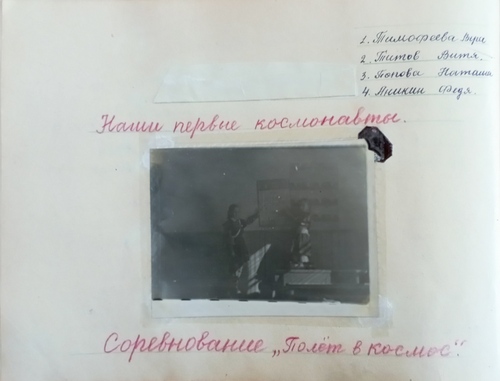 1. Тимофеева
2. Титов Витя.
3. Попова Наташа
4. Аникин Федя.
Наши первые космонавты.
Соревнование „Полёт в космос".